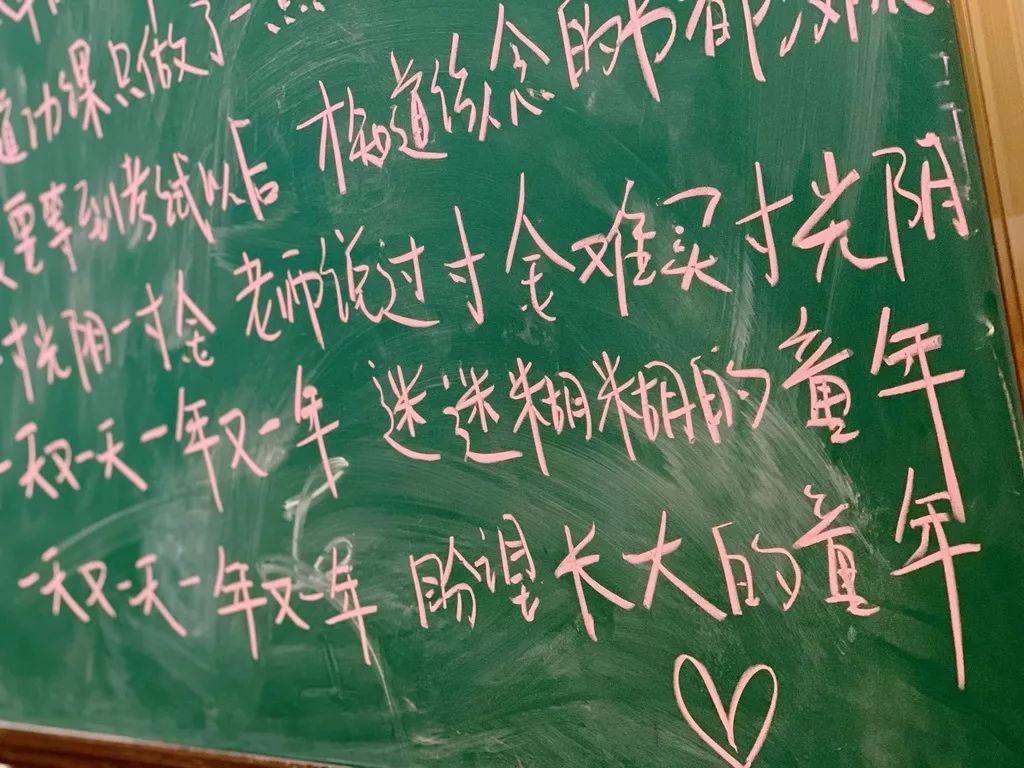 道功课只做了一点
要等到考试以后 才知道该念的书都没
寸光阴一寸金 老师说过寸金难买寸光阴
一天又一天一年又一年 迷迷糊糊的童年
一天又一天一年又一年 盼望长大的童年